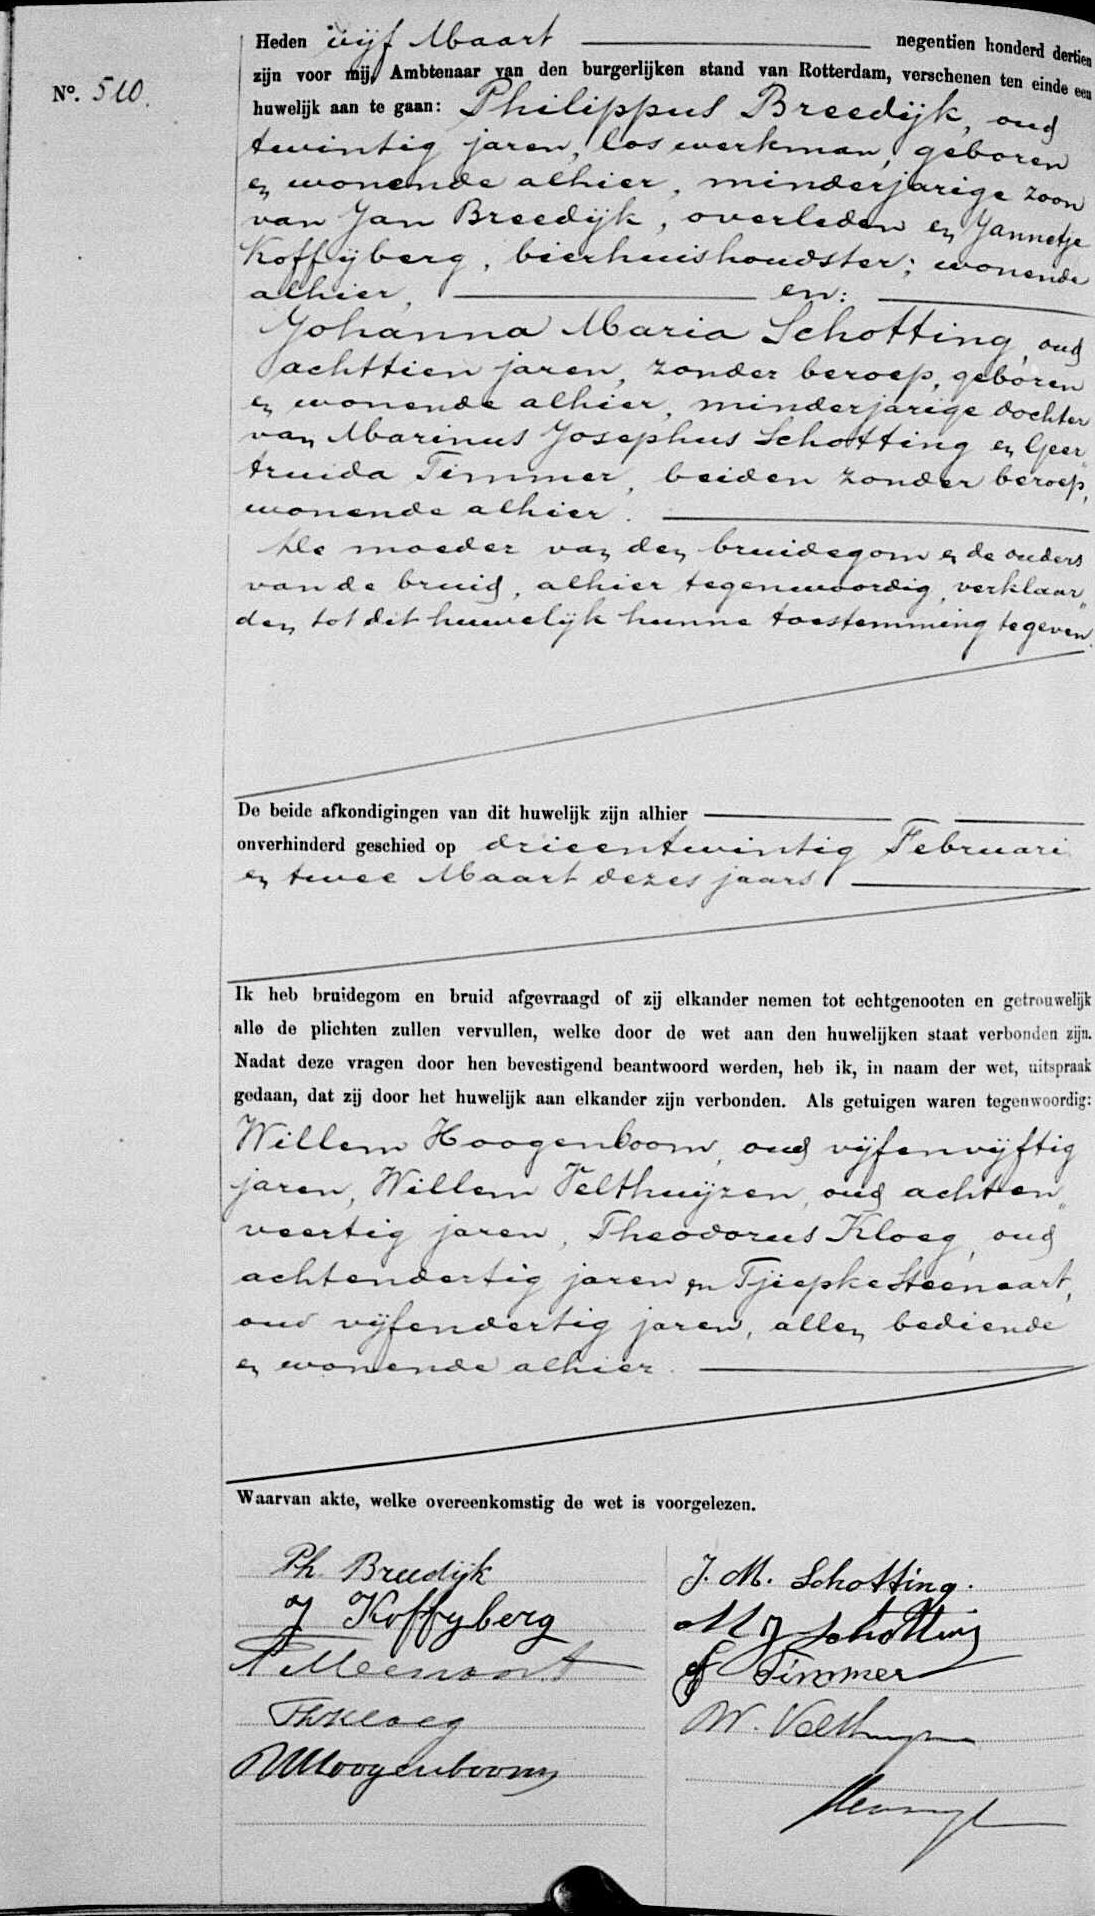 Heden vijf Maart negentien honderd dertien
No. 510.
zijn voor mij, Ambtenaar van den burgerlijken stand van Rotterdam, verschenen ten einde een
huwelijk aan te gaan: Philippus Breedijk, oud
twintig jaren, los werkman, geboren
en wonende alhier, minderjarige zoon
van Jan Breedijk, overleden en Jannetje
Koffijberg, bierhuishoudster; wonende
alhier, en:
Johanna Maria Schotting, oud
achttien jaren, zonder beroep, geboren
en wonende alhier, minderjarige dochter
van Marinus Josephus Schotting en Geer"
truida Timmer, beiden zonder beroep,
wonende alhier.
De moeder van den bruidegom en de ouders
van de bruid, alhier tegenwoordig, verklaar"
den tot dit huwelijk hunne toestemming te geven.
De beide afkondigingen van dit huwelijk zijn alhier
onverhinderd geschied op drieentwintig Februari
en twee Maart dezes jaars.
Ik heb bruidegom en bruid afgevraagd of zij elkander nemen tot echtgenooten en getrouwelijk
alle de plichten zullen vervullen, welke door de wet aan den huwelijken staat verbonden zijn.
Nadat deze vragen door hen bevestigend beantwoord werden, heb ik, in naam der wet, uitspraak
gedaan, dat zij door het huwelijk aan elkander zijn verbonden. Als getuigen waren tegenwoordig:
Willem Hoogenboom, oud vijfenvijftig
jaren, Willem Velthuijzen, oud achten"
veertig jaren, Theodorus Kloeg, oud
achtendertig jaren en Tjiepke Steenaart,
oud vijfendertig jaren, allen bediende
en wonende alhier.
Waarvan akte, welke overeenkomstig de wet is voorgelezen.
Ph. Breedijk
J. M. Schotting.
J Koffyberg
M J Schotting
Timmer
Th Kloeg
W. Velthuyzen
W Hoogenboom